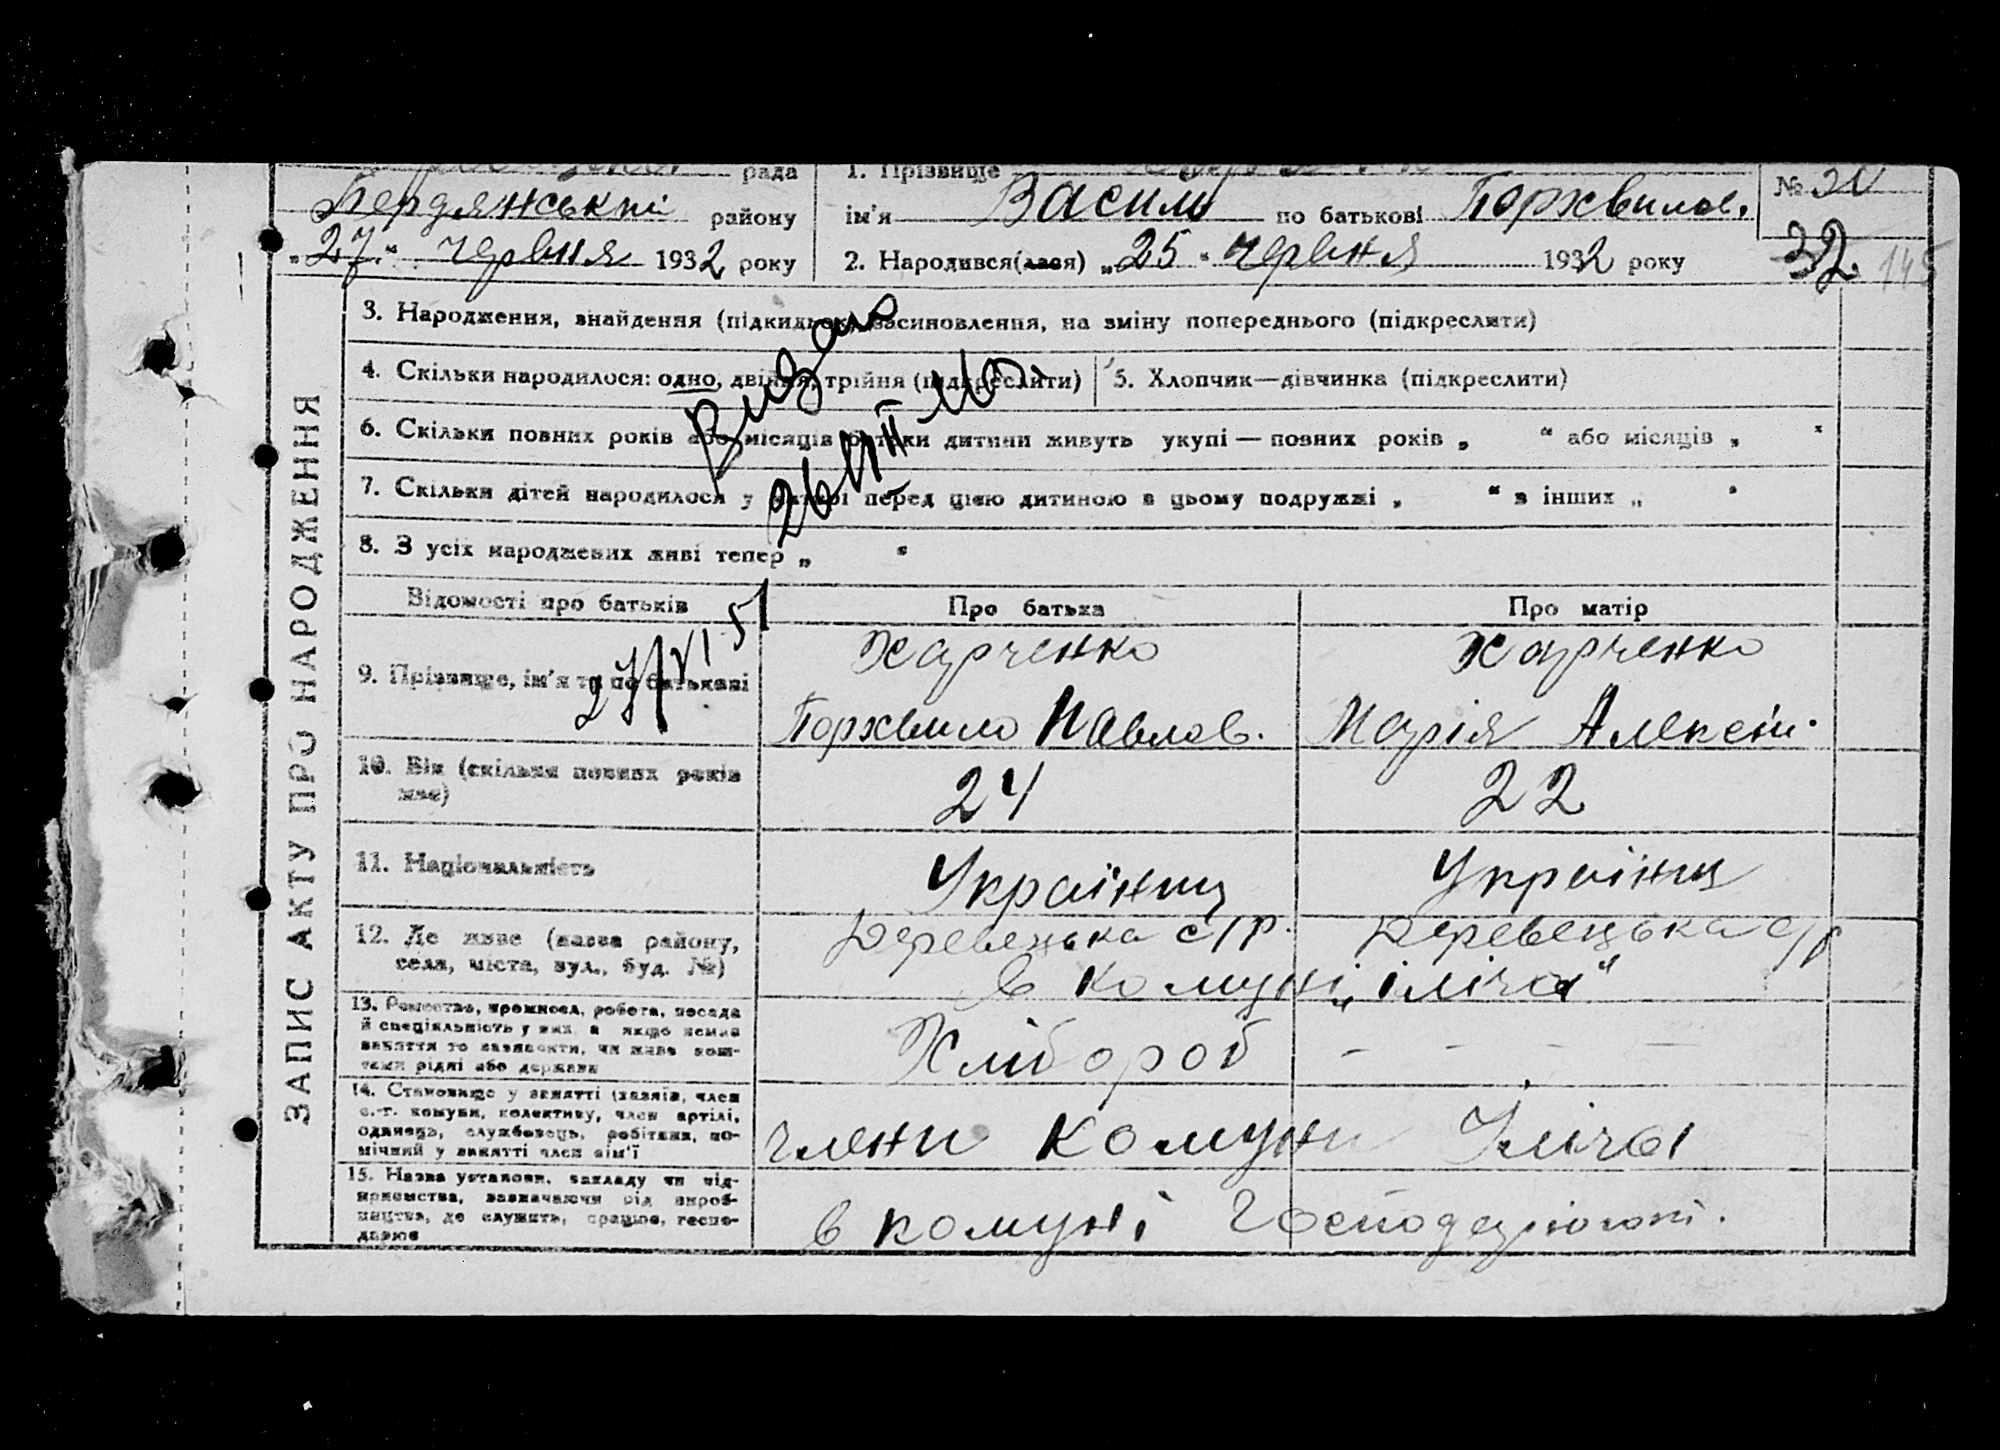 рада
1. Прізвище
№ 30
Бердянський району
ім'я Василь по батькові Порхвилов.
32 145
„27“ червня 1932 року
2. Народився(лася) „25“ червня 1932 року
ЗАПИС АКТУ ПРО НАРОДЖЕННЯ
3. Народження, знайдення (підкидьок), засиновлення, на зміну попереднього (підкреслити)
4. Скільки народилося: одно, двійня, трійня (підкреслити)
5. Хлопчик—дівчинка (підкреслити)
6. Скільки повних років або місяців батьки дитини живуть укупі — повних років „ “ або місяців „ “
7. Скільки дітей народилося у матері перед цією дитиною в цьому подружжі „ “ в інших „ “
8. З усіх народжених живі тепер „ “
27/VI 51
Відомості про батьків
Про батька
Про матір
9. Прізвище, ім'я та по батькові
Харченко
Порхвило Павлов.
Харченко
Марія Алексіи.
10. Вік (скільки повних років має)
24
22
11. Національність
Українц
Українц
12. Де живе (назва району,
села, міста, вул., буд. №)
Деревецька с/р.
Деревецька с/р
в комуні „Іліча“
13. Ремество, промисел, робота, посада
й спеціяльність у них, а якщо немає
заняття то зазначити, чи живе кош-
тами рідні або держави
Хлібороб
— — — —
14. Становище у занятті (хазяїн, член
с.-г. комуни, колективу, член артілі,
одинець, службовець, робітник, по-
мічний у занятті член сім'ї
члени комуни Іліча
15. Назва установи, закладу чи під-
приємства, зазначаючи рід вироб-
ництва, де служить, працює, госпо-
дарює
в комуні